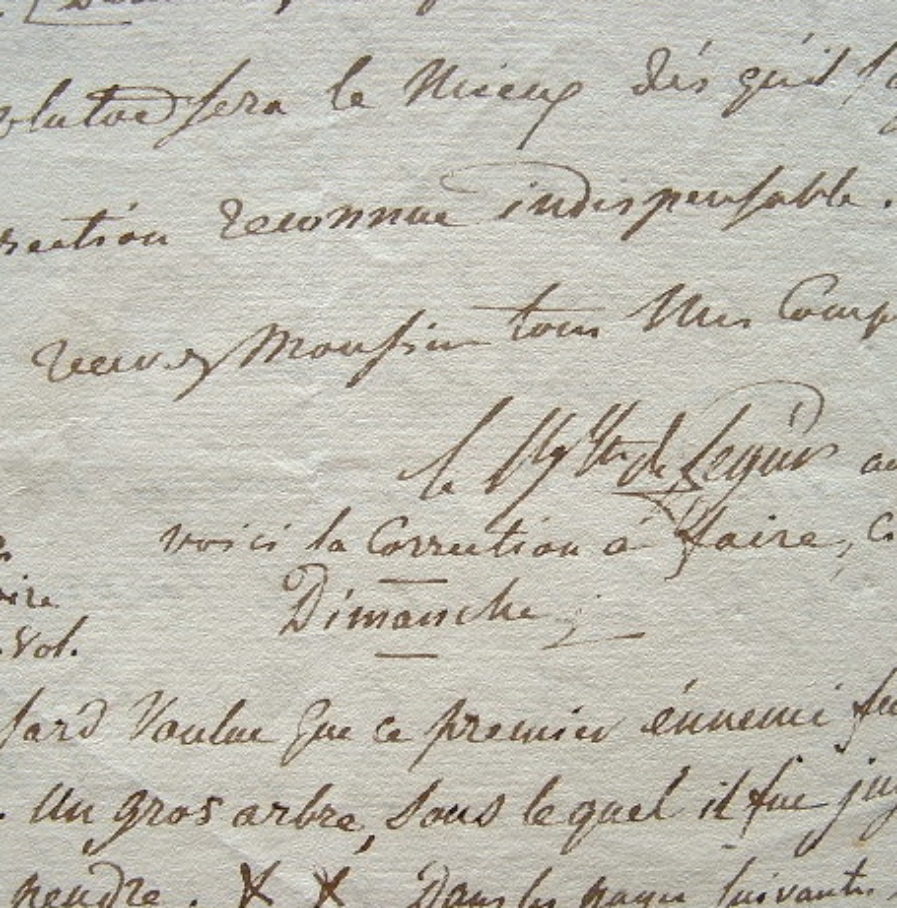 sera le Mieux dés qu'il
rection reconnue indispensable.
recevez Monsieur tous Mes Comp
le de Segur
voici la Correction à faire,
Dimanche
oire
Vol.
sard Voulut que ce premier énnemi fu
Un gros arbre, sous lequel il fut jug
pendre. X X Dans les pages suivantes